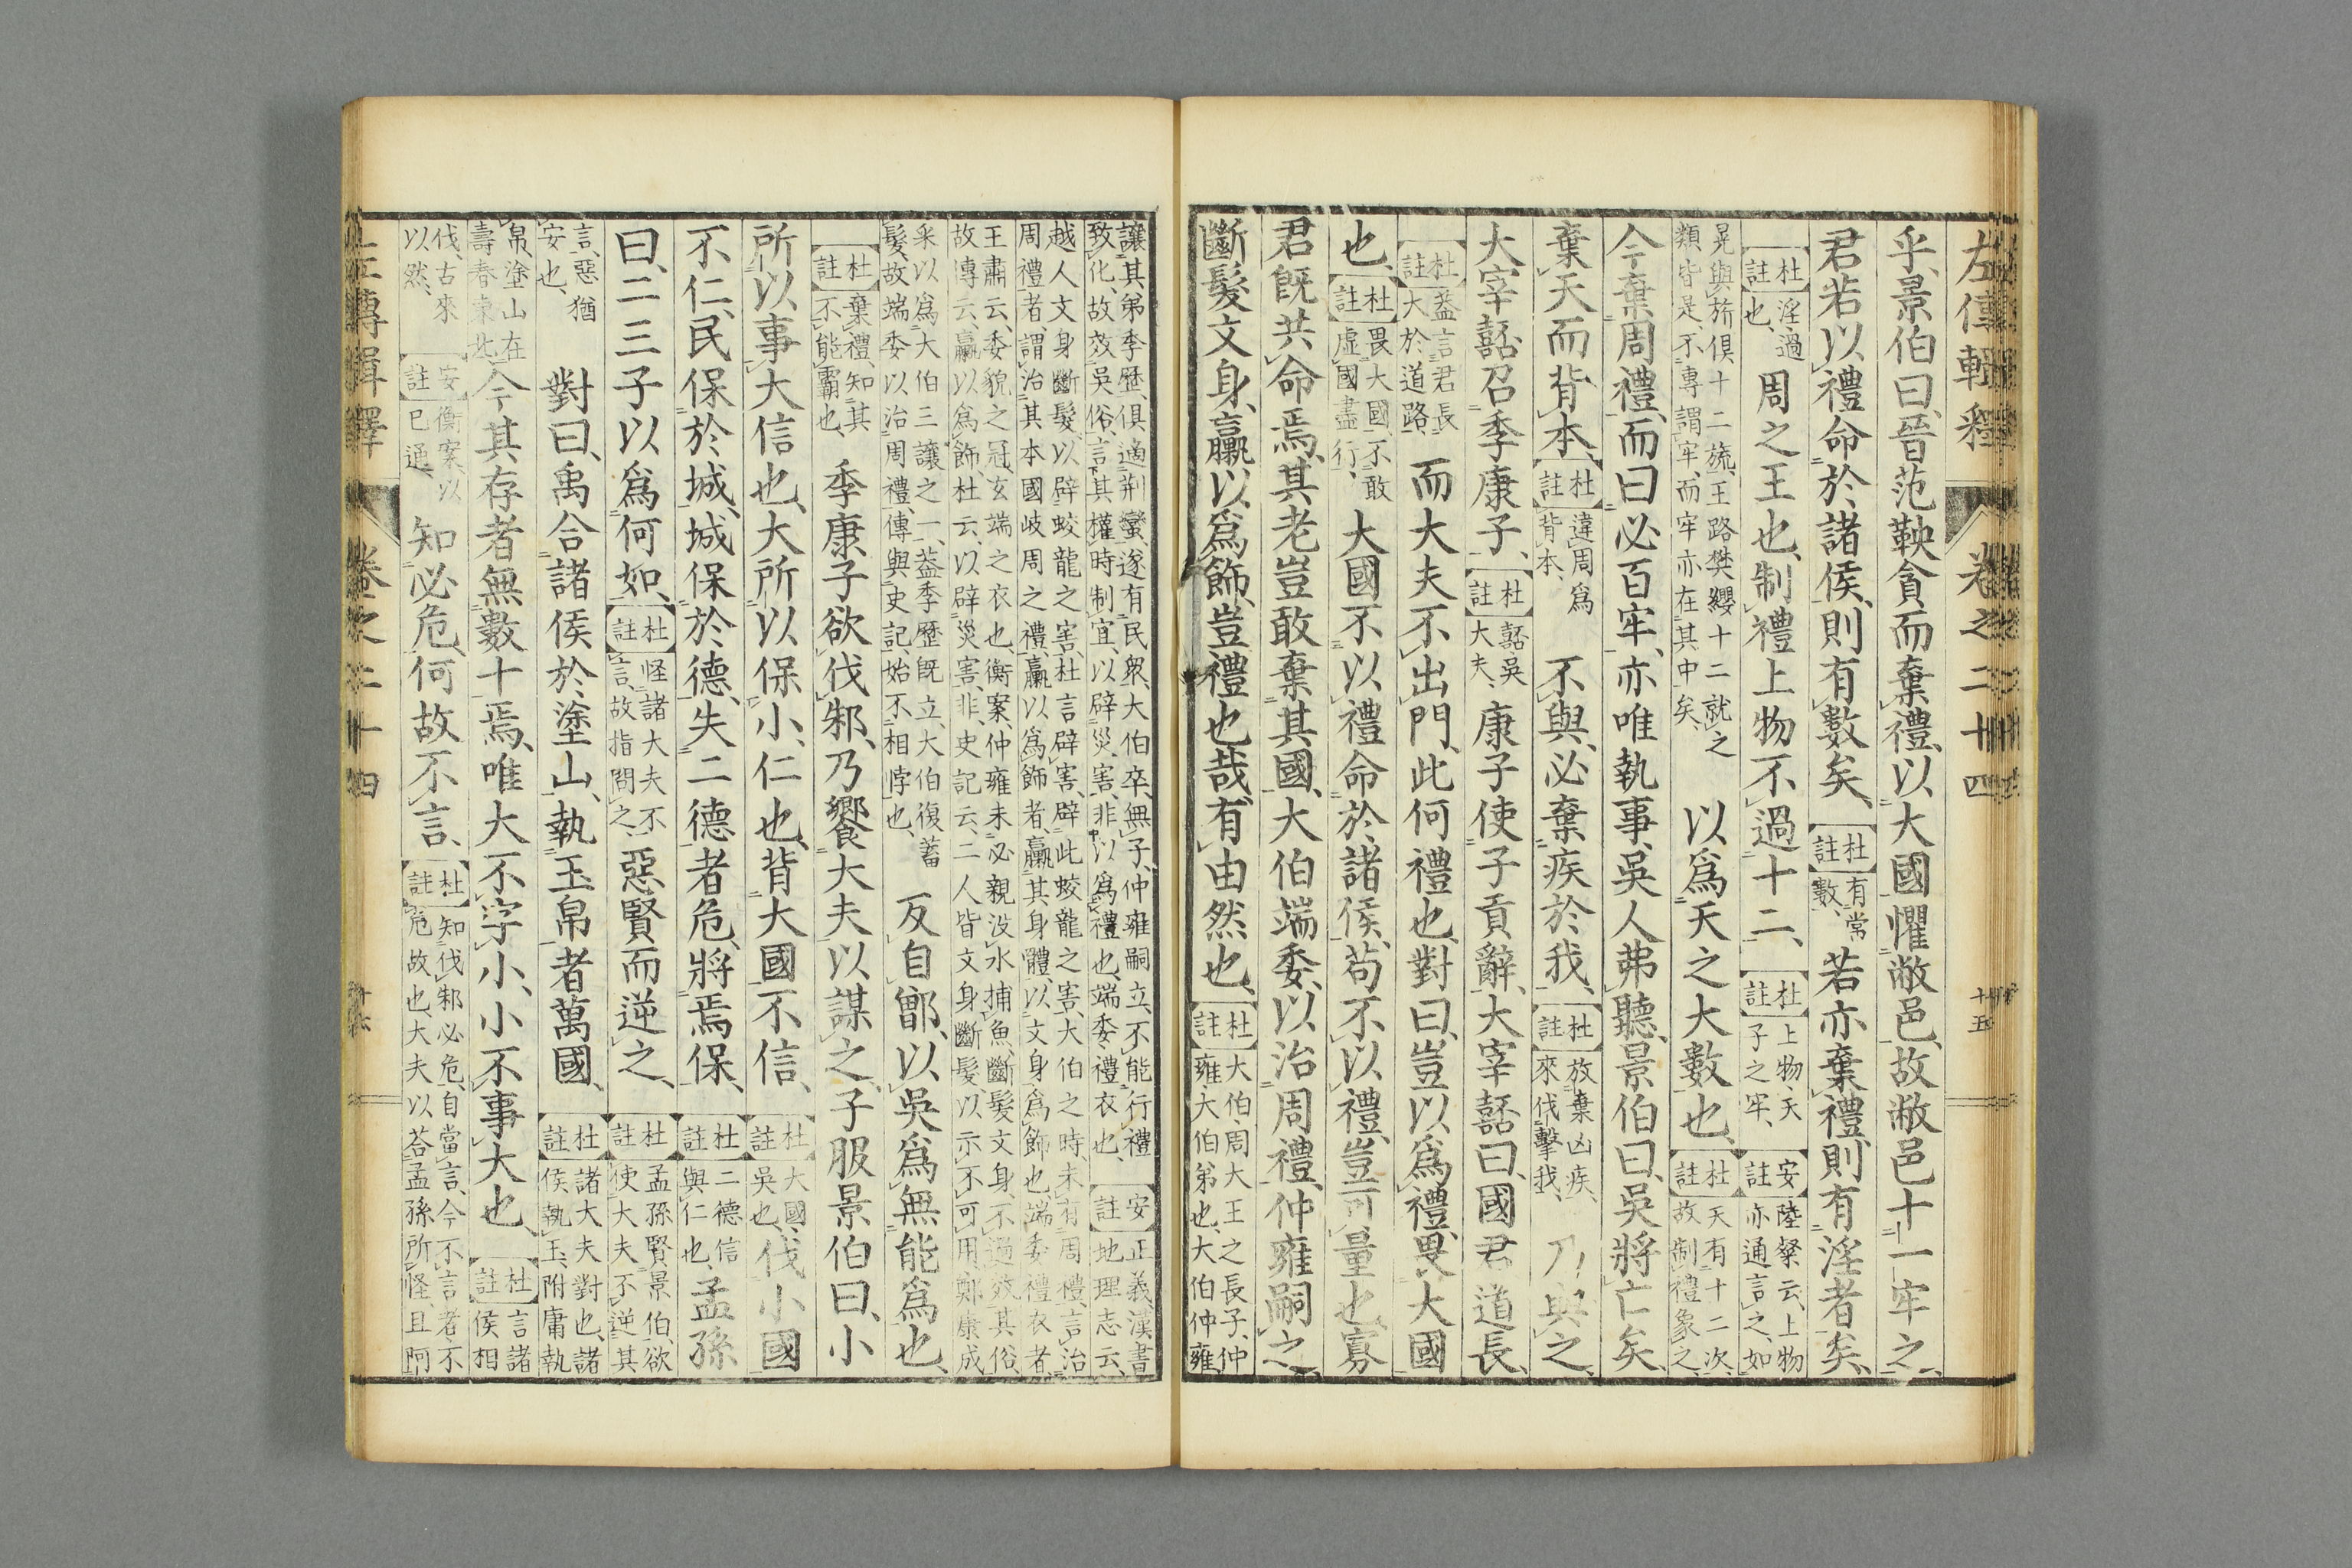 左傳輯釋 卷之二十四 十五
乎、景伯曰、晉范鞅貪而棄禮、以大國懼敝邑、故敝邑十一牢之、
君若以禮命於諸侯、則有數矣、杜註有常數、若亦棄禮、則有淫者矣、
杜註淫、過也、周之王也、制禮上物不過十二、杜註上物、天子之牢、安註陸粲云、上物亦通言之、如
冕與旂俱十二旒、王路樊纓十二就之類皆是、不專謂牢、而牢亦在其中矣、以爲天之大數也、杜註天有十二次、故制禮象之、
今棄周禮、而曰必百牢、亦唯執事、吳人弗聽、景伯曰、吳將亡矣、
棄天而背本、杜註違周爲背本、不與、必棄疾於我、杜註放棄凶疾、來伐擊我、乃與之、
大宰嚭召季康子、杜註嚭、吳大夫、康子使子貢辭、大宰嚭曰、國君道長、
杜註蓋言君長大於道路、而大夫不出門、此何禮也、對曰、豈以爲禮、畏大國
也、杜註畏大國、不敢虛國盡行、大國不以禮命於諸侯、苟不以禮、豈可量也、寡
君既共命焉、其老豈敢棄其國、大伯端委、以治周禮、仲雍嗣之、
斷髮文身、臝以爲飾、豈禮也哉、有由然也、杜註大伯、周大王之長子、仲雍、大伯弟也、大伯仲雍
讓其弟季歷、俱適荆蠻、遂有民衆、大伯卒、無子、仲雍嗣立、不能行禮致化、故效吳俗、言其權時制宜、以辟災害、非以爲禮也、端委、禮衣也、安註正義、漢書地理志云、
越人文身斷髮、以辟蛟龍之害、杜言辟害、辟此蛟龍之害、大伯之時、未有周禮、言治周禮者、謂治其本國岐周之禮、臝以爲飾者、臝其身體、以文身爲飾也、端委禮衣者、
王肅云、委貌之冠、玄端之衣也、衡案、仲雍未必親没水捕魚、斷髮文身、不過效其俗、故傳云、臝以爲飾、杜云、以辟災害、非、史記云、二人皆文身斷髮、以示不可用、鄭康成
采以爲大伯三讓之一、蓋季歷既立、大伯復蓄髮、故端委以治周禮、傳與史記、始不相悖也、反自鄫、以吳爲無能爲也、
杜註棄禮、知其不能霸也、季康子欲伐邾、乃饗大夫以謀之、子服景伯曰、小
所以事大信也、大所以保小、仁也、背大國不信、杜註大國、吳也、伐小國
不仁、民保於城、城保於德、失二德者危、將焉保、杜註二德、信與仁也、孟孫
曰、二三子以爲何如、杜註怪諸大夫不言、故指問之、惡賢而逆之、杜註孟孫賢景伯、欲使大夫不逆其
言、惡猶安也、對曰、禹合諸侯於塗山、執玉帛者萬國、杜註諸大夫對也、諸侯執玉、附庸執
帛、塗山在壽春東北、今其存者無數十焉、唯大不字小、小不事大也、杜註言諸侯相
伐、古來以然、安註衡案、以已通、知必危、何故不言、杜註知伐邾必危、自當言、今不言者、不危故也、大夫以荅孟孫所怪、且阿
左傳輯釋 卷之二十四 十六